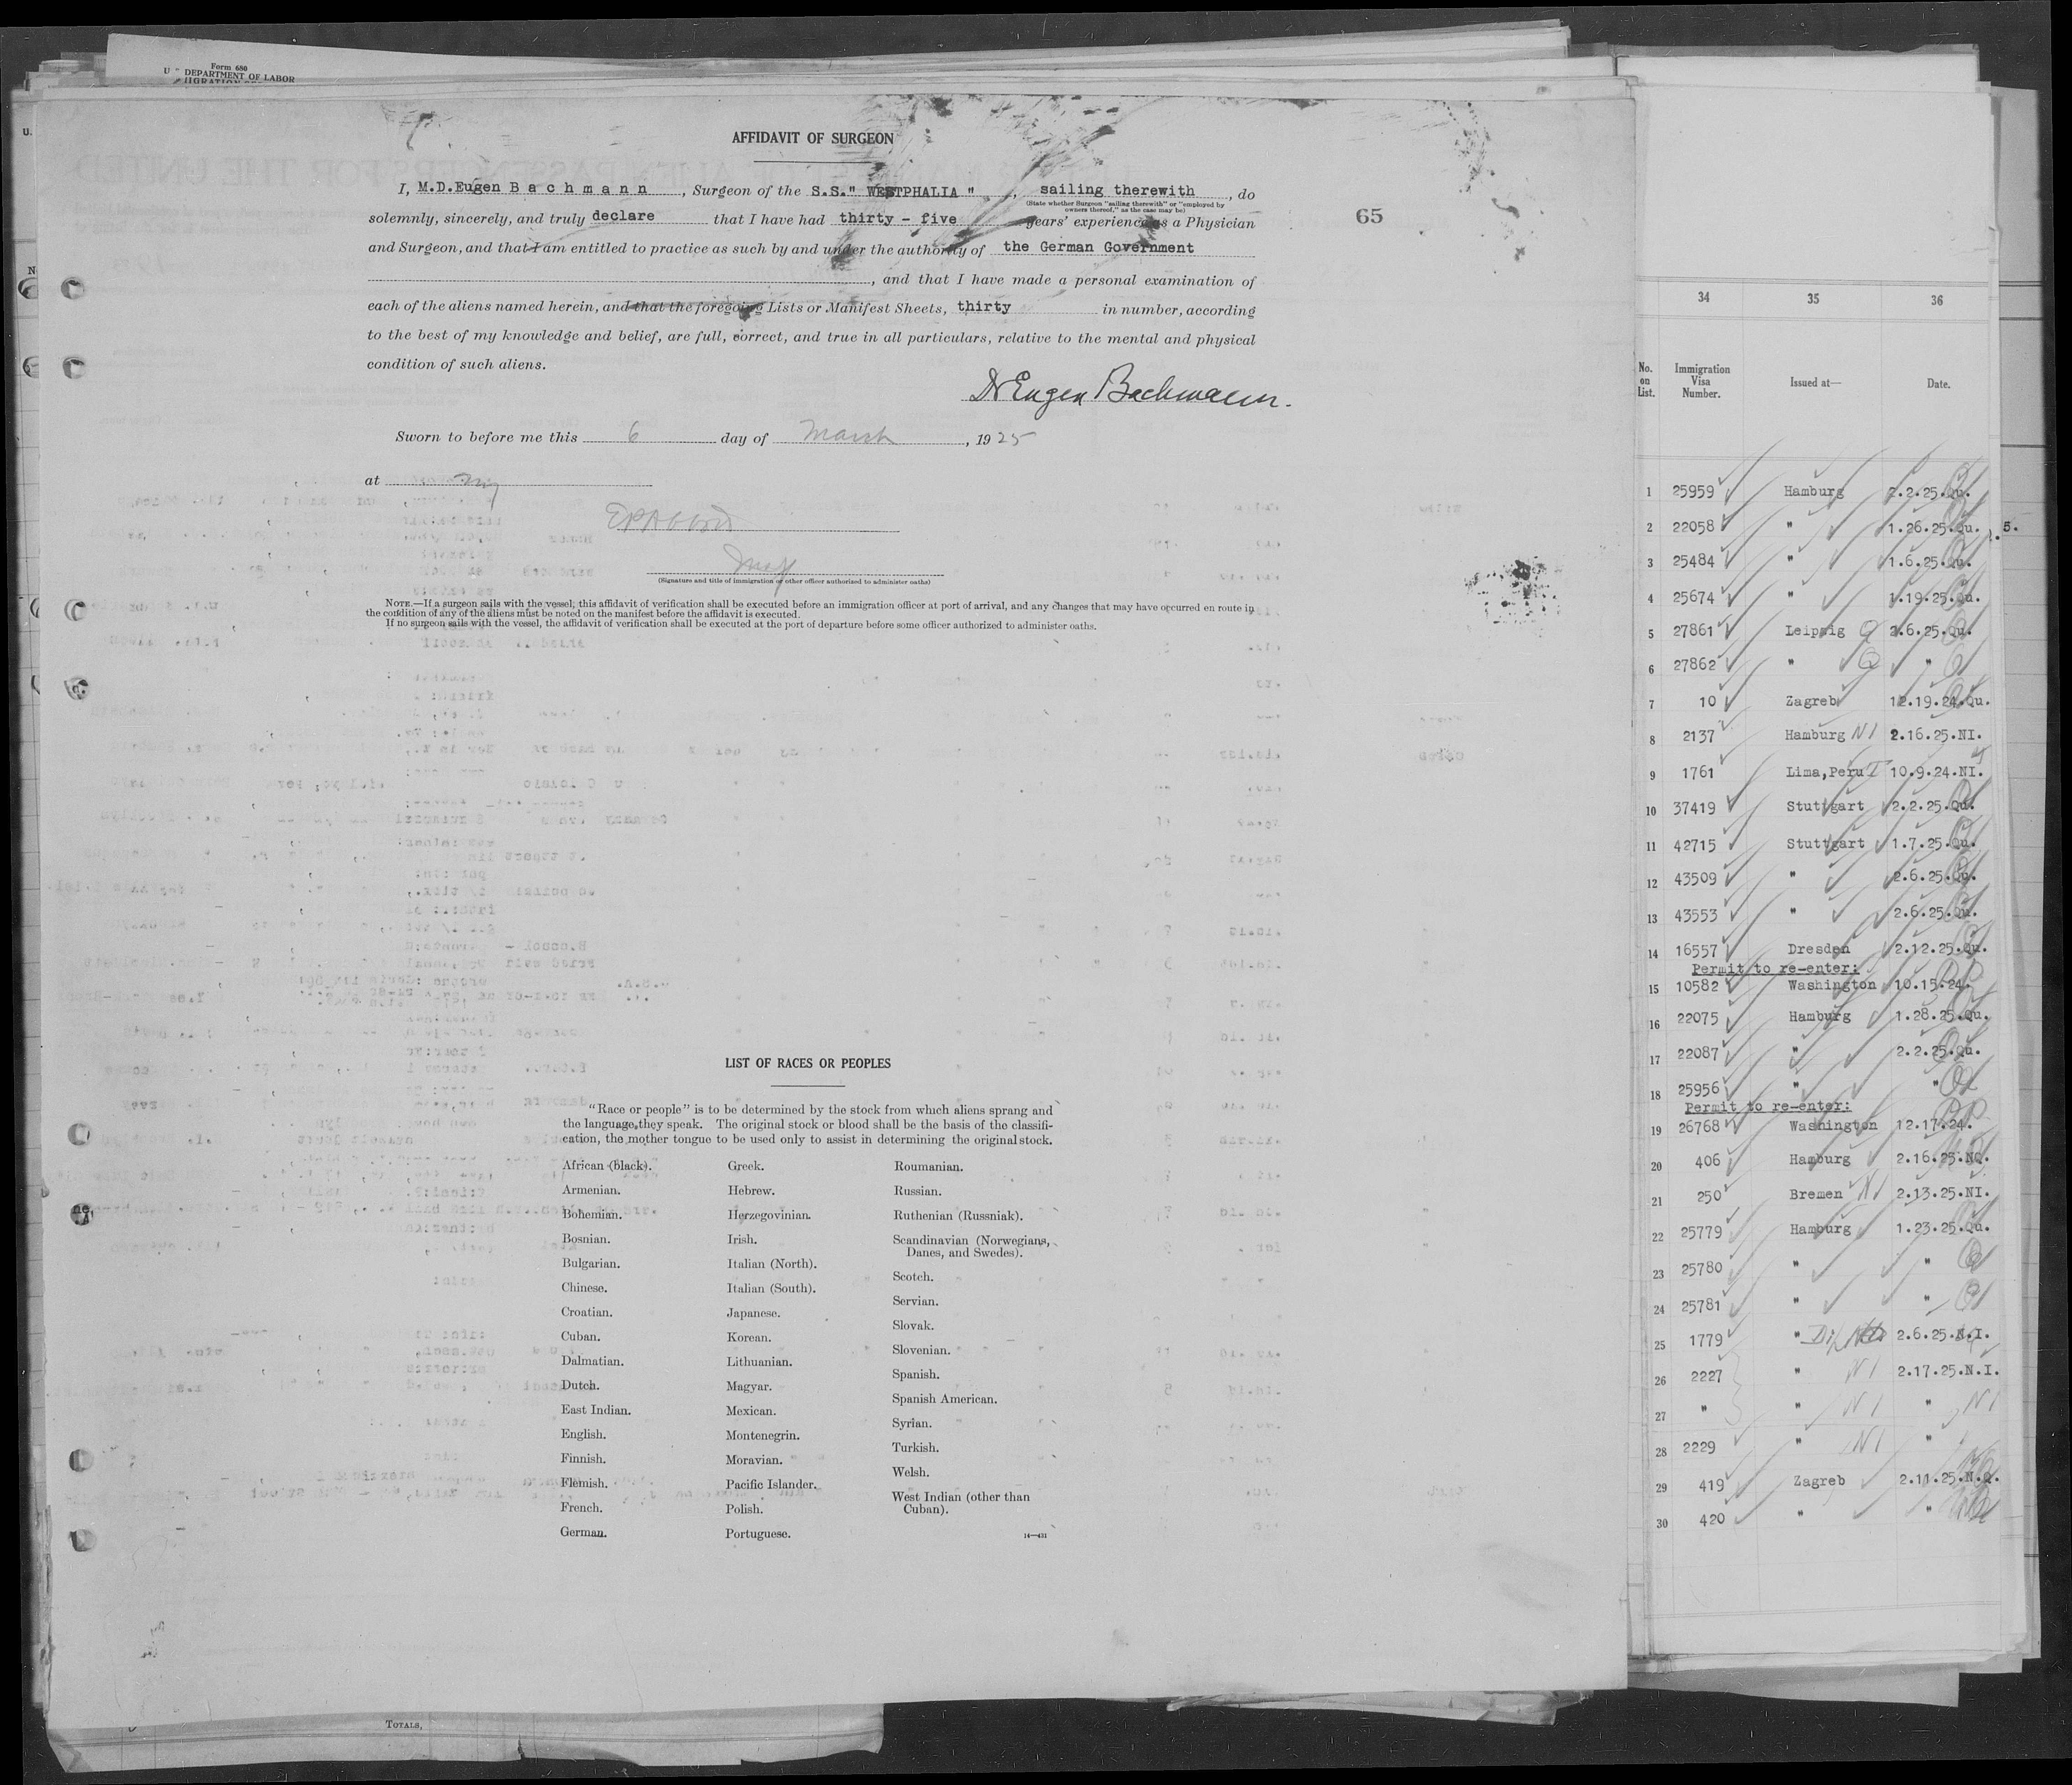 Form 680
DEPARTMENT OF LABOR
AFFIDAVIT OF SURGEON
I, M.D.Eugen Bachmann, Surgeon of the S.S." WESTPHALIA ", sailing therewith, do
(State whether Surgeon "sailing therewith" or "employed by
owners thereof," as the case may be)
solemnly, sincerely, and truly declare that I have had thirty - five years' experience as a Physician
65
and Surgeon, and that I am entitled to practice as such by and under the authority of the German Government
, and that I have made a personal examination of
each of the aliens named herein, and that the foregoing Lists or Manifest Sheets, thirty in number, according
to the best of my knowledge and belief, are full, correct, and true in all particulars, relative to the mental and physical
condition of such aliens.
Dr Eugen Bachmann.
Sworn to before me this 6 day of March, 1925
at
(Signature and title of immigration or other officer authorized to administer oaths)
NOTE.—If a surgeon sails with the vessel, this affidavit of verification shall be executed before an immigration officer at port of arrival, and any changes that may have occurred en route in
the condition of any of the aliens must be noted on the manifest before the affidavit is executed.
If no surgeon sails with the vessel, the affidavit of verification shall be executed at the port of departure before some officer authorized to administer oaths.
LIST OF RACES OR PEOPLES
"Race or people" is to be determined by the stock from which aliens sprang and
the language they speak. The original stock or blood shall be the basis of the classifi-
cation, the mother tongue to be used only to assist in determining the original stock.
African (black).
Armenian.
Bohemian.
Bosnian.
Bulgarian.
Chinese.
Croatian.
Cuban.
Dalmatian.
Dutch.
East Indian.
English.
Finnish.
Flemish.
French.
German.
Greek.
Hebrew.
Herzegovinian.
Irish.
Italian (North).
Italian (South).
Japanese.
Korean.
Lithuanian.
Magyar.
Mexican.
Montenegrin.
Moravian.
Pacific Islander.
Polish.
Portuguese.
Roumanian.
Russian.
Ruthenian (Russniak).
Scandinavian (Norwegians,
Danes, and Swedes).
Scotch.
Servian.
Slovak.
Slovenian.
Spanish.
Spanish American.
Syrian.
Turkish.
Welsh.
West Indian (other than
Cuban).
14—431
TOTALS,
34 35 36
No. on List. Immigration Visa Number. Issued at— Date.
1 25959 Hamburg 2.2.25.Qu.
2 22058 " 1.26.25.Qu. 5.
3 25484 " 1.6.25.Qu.
4 25674 " 1.19.25.Qu.
5 27861 Leipzig Q 2.6.25.Qu.
6 27862 " Q "
7 10 Zagreb 12.19.24.Qu.
8 2137 Hamburg NI 2.16.25.NI.
9 1761 Lima,Peru 10.9.24.NI.
10 37419 Stuttgart 2.2.25.Qu.
11 42715 Stuttgart 1.7.25.Qu.
12 43509 " 2.6.25.Qu.
13 43553 " 2.6.25.Qu.
14 16557 Dresden 2.12.25.Qu.
Permit to re-enter:
15 10582 Washington 10.15.24.
16 22075 Hamburg 1.28.25.Qu.
17 22087 " 2.2.25.Qu.
18 25956 " "
Permit to re-enter:
19 26768 Washington 12.17.24.
20 406 Hamburg 2.16.25.NQ.
21 250 Bremen NI 2.13.25.NI.
22 25779 Hamburg 1.23.25.Qu.
23 25780 " "
24 25781 " "
25 1779 " 2.6.25.N.I.
26 2227 " NI 2.17.25.N.I.
27 " " NI " NI
28 2229 " NI "
29 419 Zagreb 2.11.25.N.Q.
30 420 " "